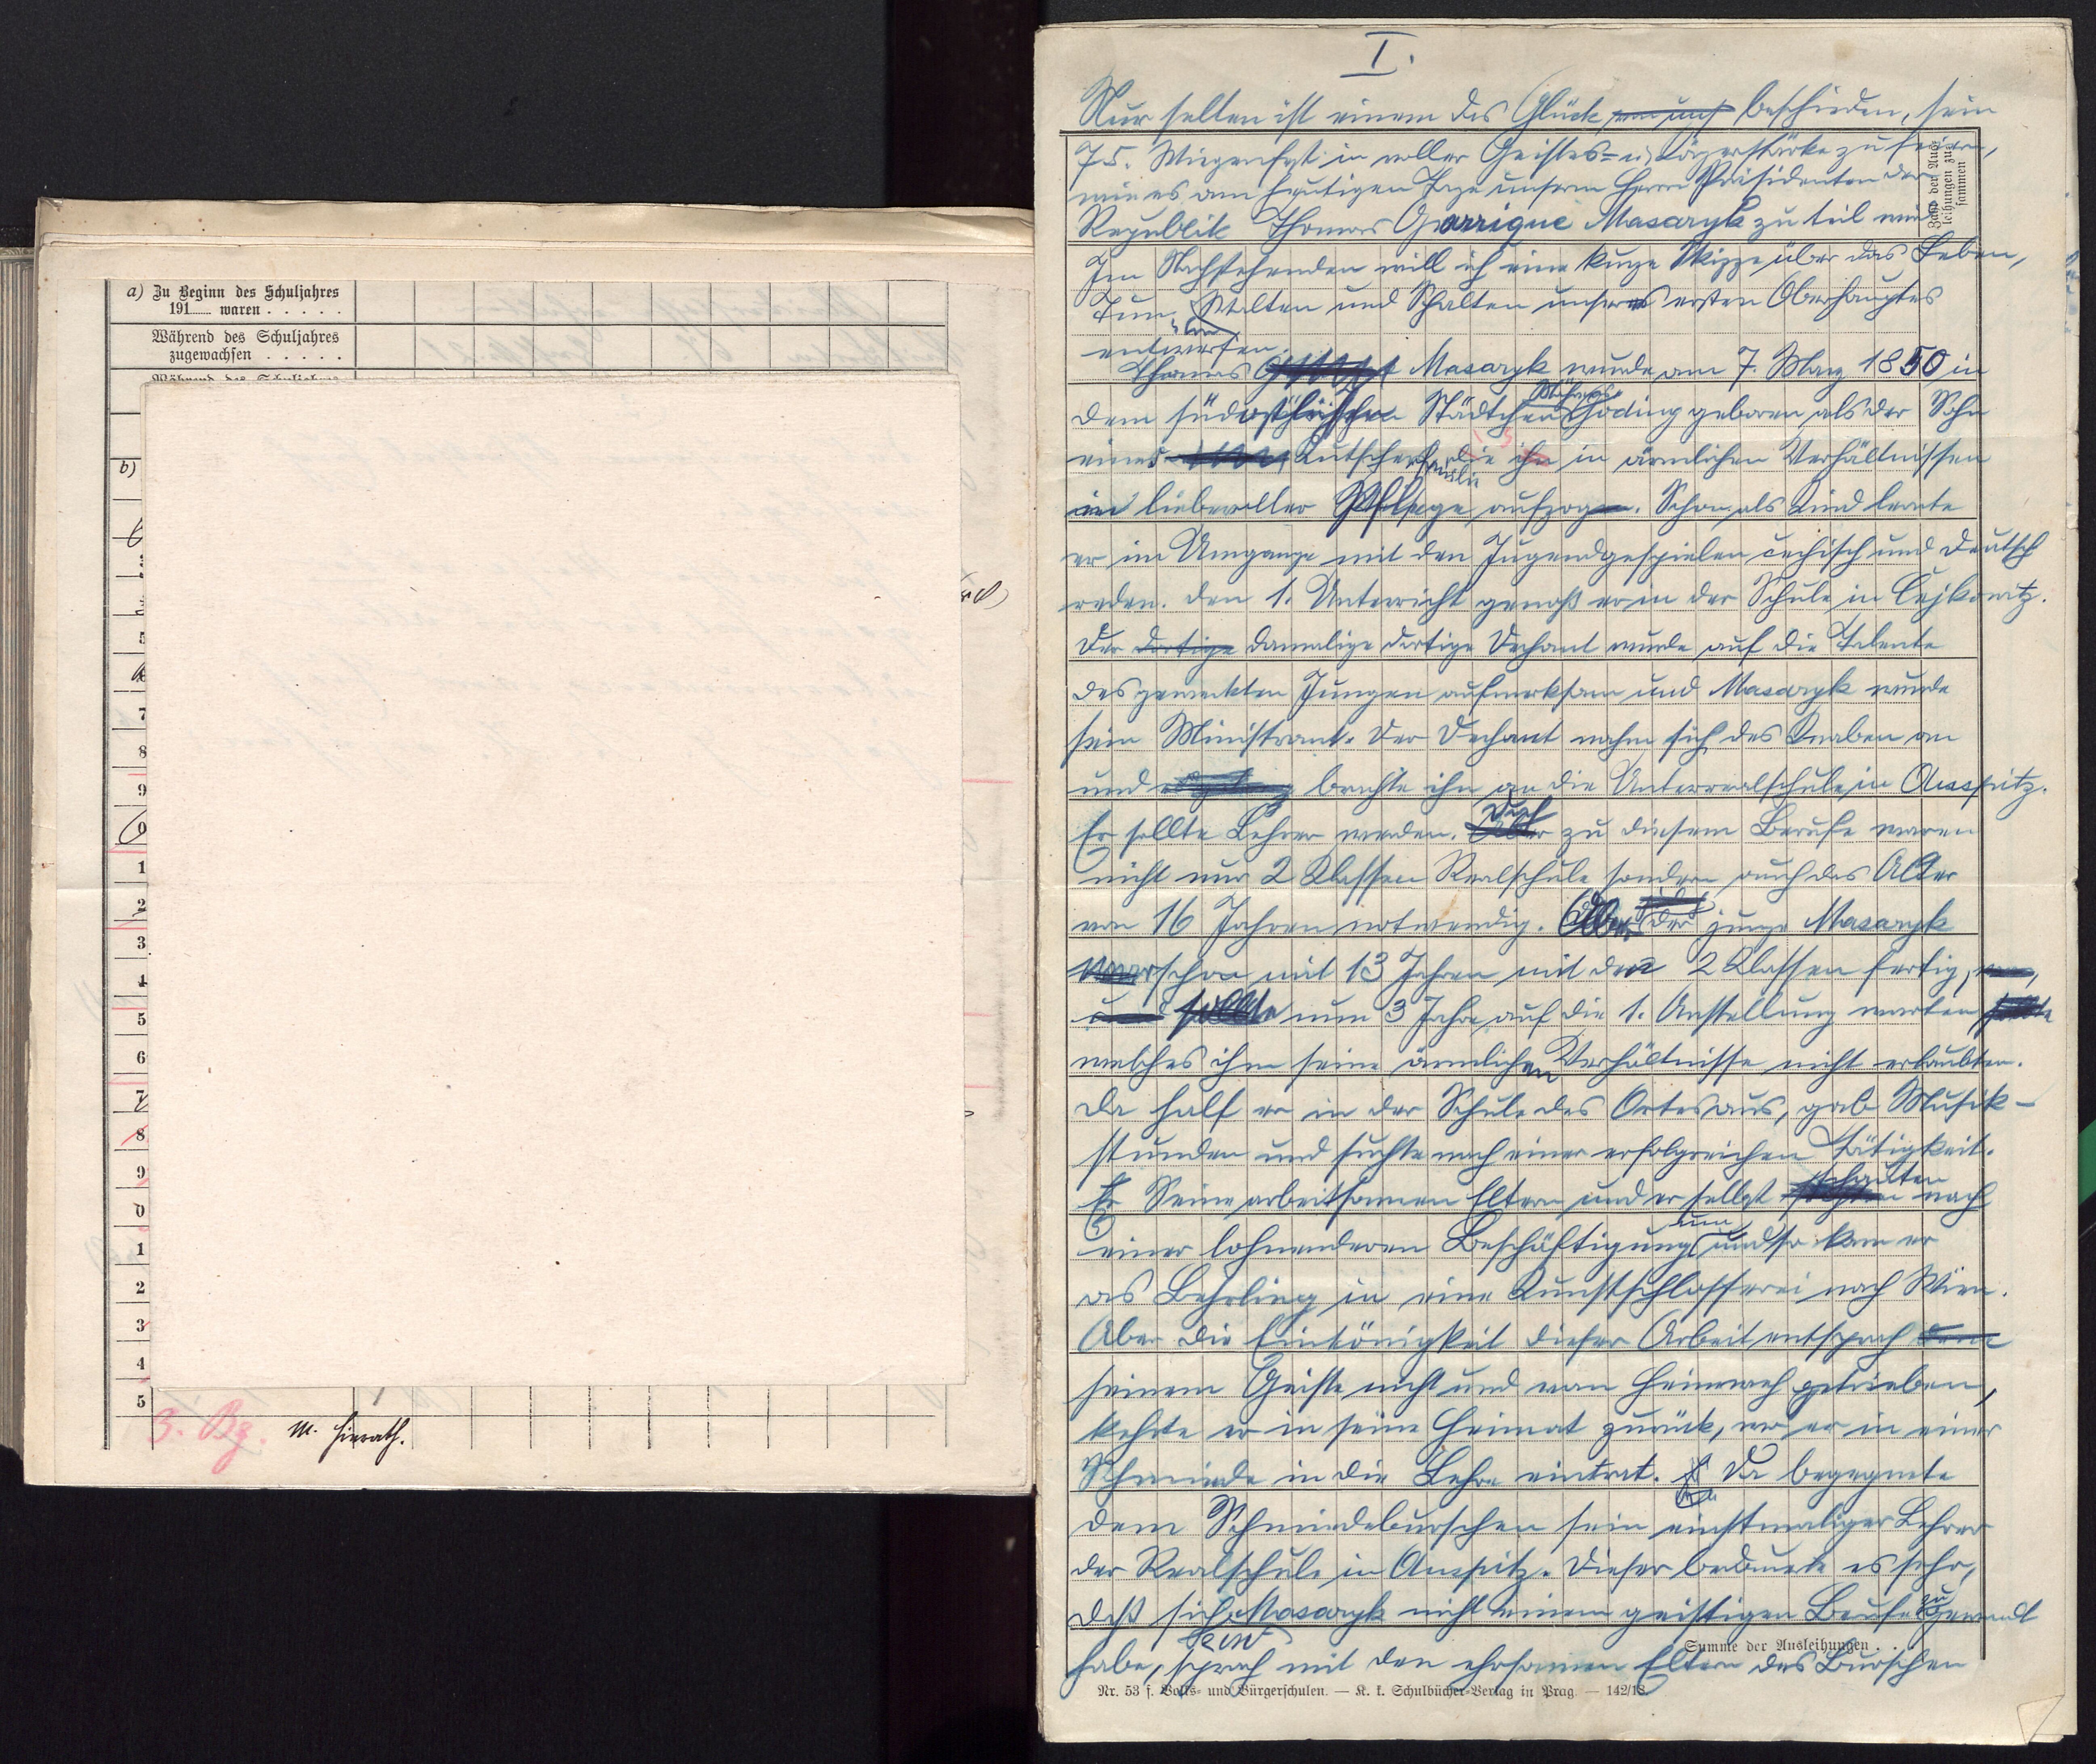 a) Zu Beginn des Schuljahres
191 waren . . . . .
Während des Schuljahres
zugewachsen . . . . .
b)
7
8
9
0
1
2
3
4
5
6
7
8
9
0
1
2
3
4
5
3. Bg. M. Heirath.
I.
Nur selten ist einem das Glück beschieden, sein
75. Wiegenfest in voller Geistes- u. Körperstärke zu feiern,
wie es am heutigen Tage unserem Herrn Präsidenten der
Republik Thomas Garrigue Masaryk zu teil wird
Zahl der Aus-
leihungen zu-
sammen
Im Nachstehenden will ich eine kurze Skizze über das Leben,
Tun, Walten und Schalten unseres ersten Oberhauptes
entwerfen.
Thomas Masaryk wurde am 7. März 1850 in
dem südöstlichen Städtchen Mährens Göding geboren als der Sohn
eines Kutschers familie die ihn in ärmlichen Verhältnissen
in liebevoller Pflege aufzog. Schon als Kind lernte
er im Umgange mit den Jugendgespielen čechisch und deutsch
reden. Den 1. Unterricht genoß er in der Schule in Čejkowitz.
Der dortige damalige dortige Dechant wurde auf die Talente
des geweckten Jungen aufmerksam und Masaryk wurde
sein Ministrant. Der Dechant nahm sich des Knaben an
und brachte ihn an die Unterrealschule in Ausspitz.
Er sollte Lehrer werden. Doch zu diesem Berufe waren
nicht nur 2 Klassen Realschule sondern auch das Alter
von 16 Jahren notwendig. Aber der junge Masaryk
war schon mit 13 Jahren mit den 2 Klassen fertig,
und sollte nun 3 Jahre auf die 1. Anstellung warten
welches ihm seine ärmlichen Verhältnisse nicht erlaubten.
Da half er in der Schule des Ortes aus, gab Musik-
stunden und suchte nach einer erfolgreichen Tätigkeit.
Er Seine arbeitsamen Eltern und er selbst schauten nach
einer lohnenderen Beschäftigung um und so kam er
as Lehrling in eine Kunstschlosserei nach Wien.
Aber die Eintönigkeit dieser Arbeit entsprach dem
seinem Geiste nicht und von Heimweh getrieben,
kehrte er in seine Heimat zurück, wo er in einer
Schmiede in die Lehre eintrat. Da begegnete
dem Schmiedeburschen sein einstmaliger Lehrer
der Realschule in Auspitz. Dieser bedauerte es sehr,
daß sich Masaryk nicht einem geistigen Berufe zugewandt
habe, sprach mit den ehrsamen Eltern des Burschen
Summe der Ausleihungen . .
Nr. 53 f. Volks- und Bürgerschulen. — K. k. Schulbücher-Verlag in Prag. — 142/13